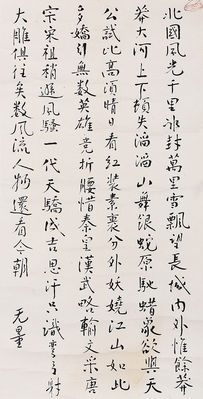 北國風光千里冰封萬里雪飄望長城内外惟餘莽
莽大河上下頓失滔滔山舞銀蛇原馳蠟象欲與天
公試比高須晴日看紅裝素裹分外妖嬈江山如此
多嬌引無數英雄竞折腰惜秦皇漢武略輸文采唐
宗宋祖稍遜風騷一代天驕成吉思汗只識彎弓射
大雕俱往矣數風流人物還看今朝
无量